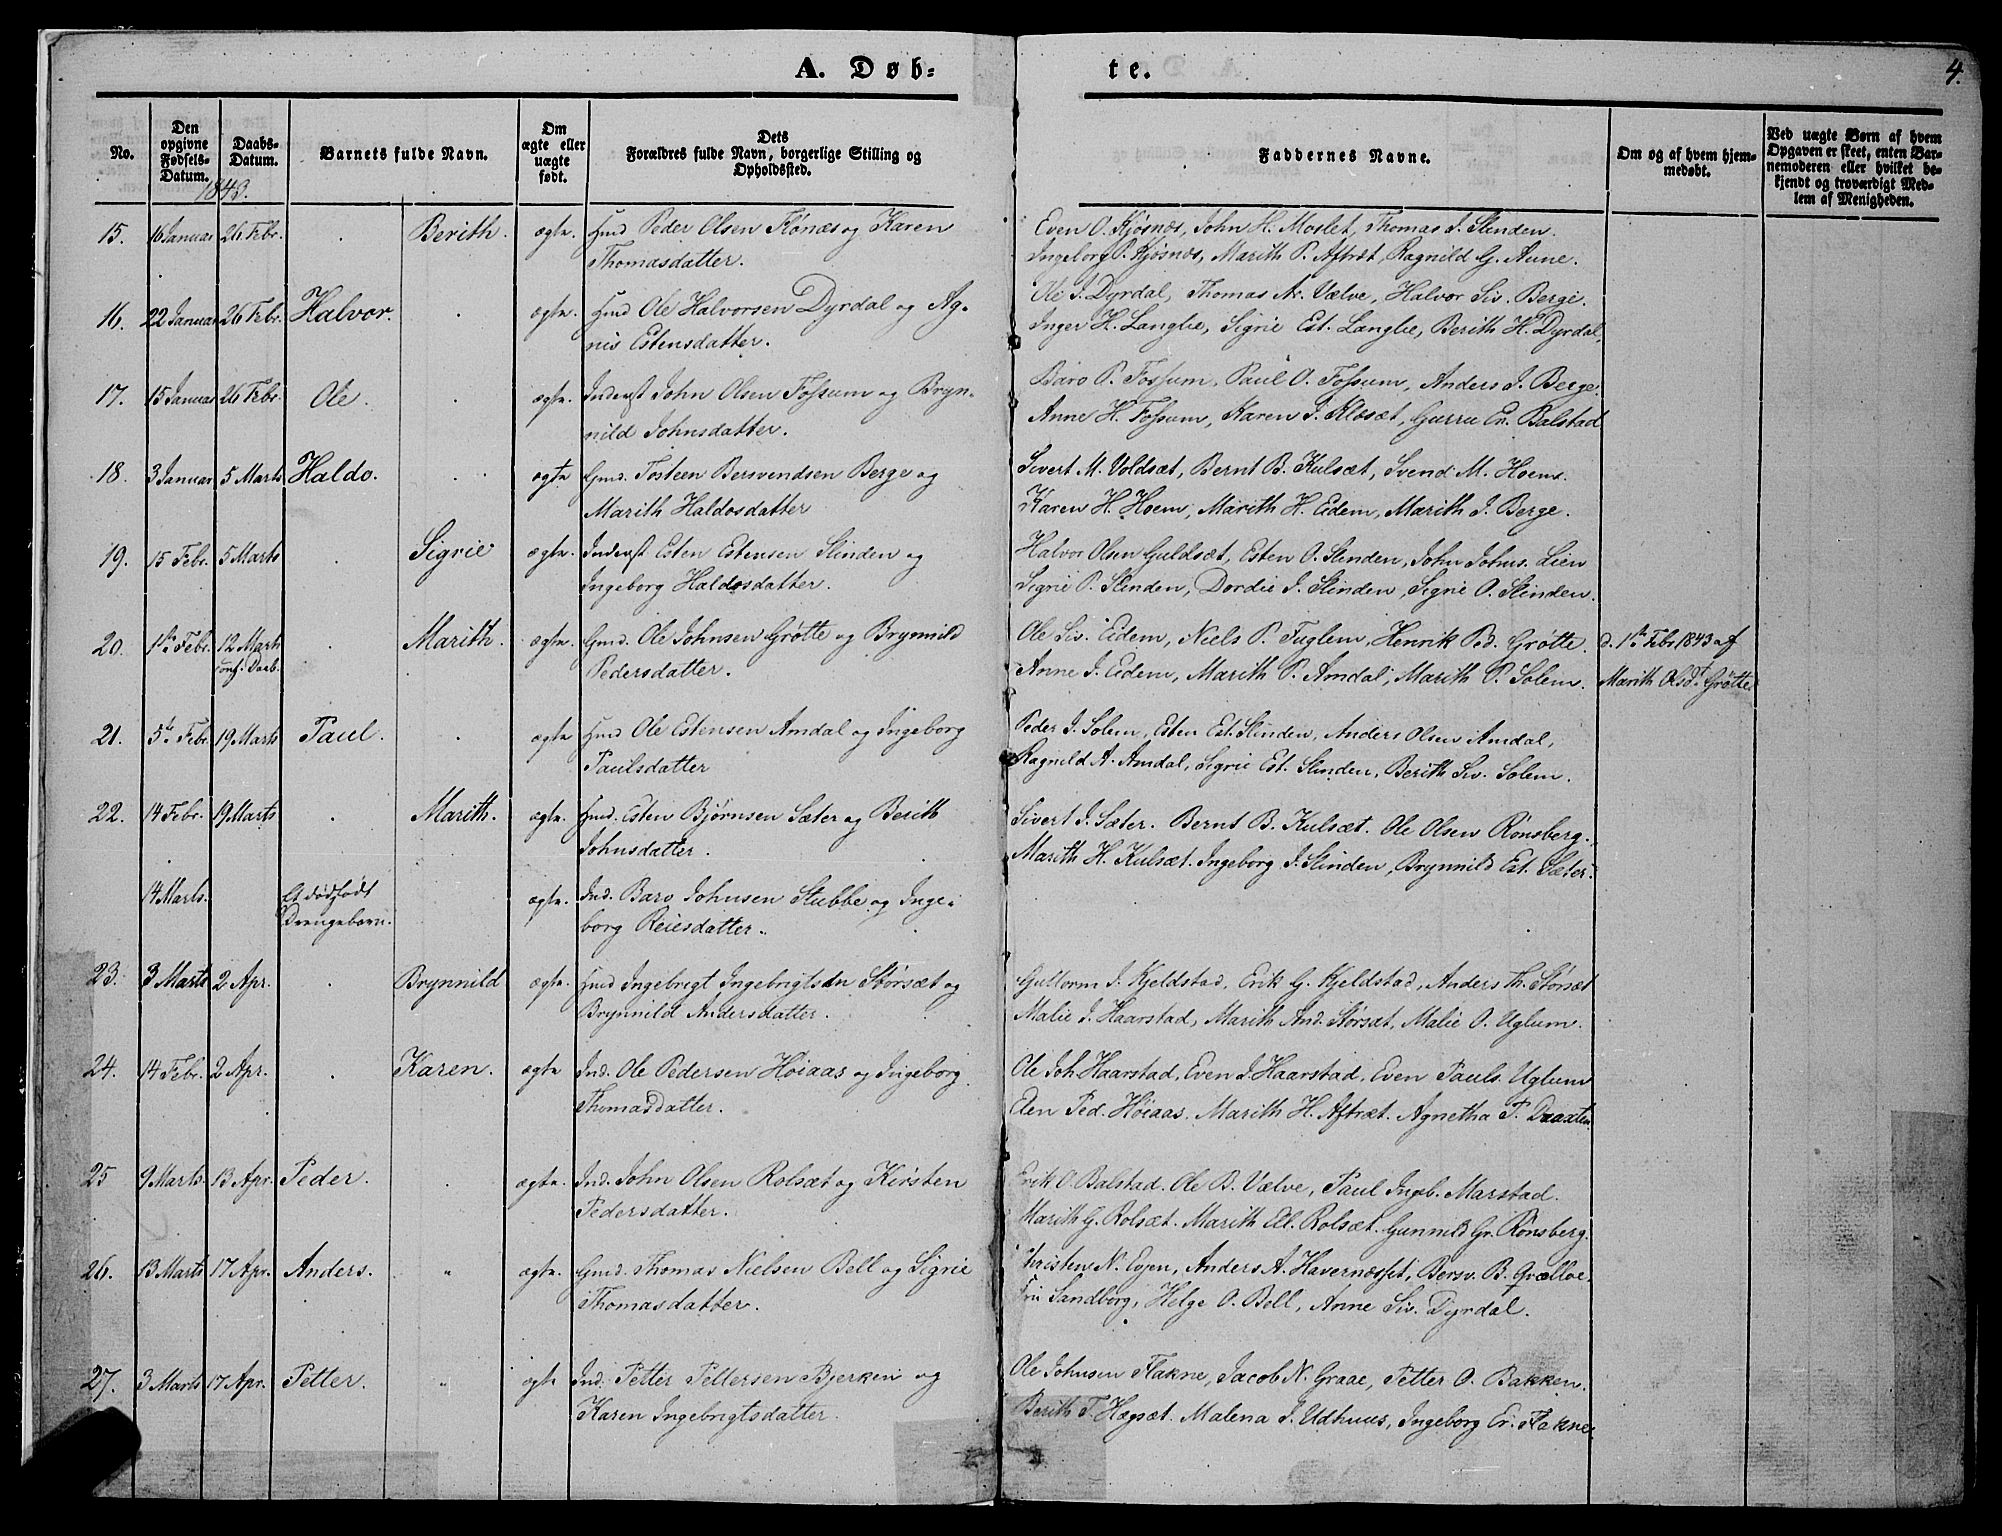 A. Døb-te.
4.
No.
Den opgivne Fødsels-Datum.
Daabs-Datum.
Barnets fulde Navn.
Om ægte eller uægte født.
Dets Forældres fulde Navn, borgerlige Stilling og Opholdssted.
Faddernes Navne.
Om og af hvem hjem-medøbt.
Ved uægte Børn af hvem Opgaven er skeet, enten Bar-nemoderen eller hvilket be-kjendt og troværdigt Med-lem af Menigheden.
1843.
15. 16 Januar 26 Febr. . Berith. ægte. Hmd Peder Olsen og Karen Even O. Kjösnæs, John H. Moslet, Thomas J. Slinden.
Thomasdatter. Ingeborg P. Kjösnæs, Marith P. Aftræt, Ragnild G. Aune.
16. 22 Januar 26 Febr. Halvor. . ægte. Hmd Ole Halvorsen Dyrdal og Ag- Ole J. Dyrdal, Thomas Ar. Vælve, Halvor Siv. Berge.
nis Estensdatter. Inger H. Langlie, Sigrie Est. Langlie, Berith H. Dyrdal.
17. 15 Januar 26 Febr. Ole. . ægte. Inderst John Olsen Fossum og Bryn- Baro P. Fossum, Paul O. Fossum, Anders J. Berge.
nild Johnsdatter. Anne H. Fossum, Karen J. Klæsæt, Gurru Er. Balstad
18. 3 Januar 5 Marts Haldo. . ægte Gmd. Tosteen Bersvendsen Berge og Sivert M. Voldsæt, Bernt B. Kulsæt, Svend M. Hoem.
Marith Haldosdatter Karen H. Hoem, Marith H. Eidem, Marith J. Berge.
19. 15 Febr. 5 Marts . Sigrie ægte. Inderst Esten Estensen Slinden og Halvor Olsen Guldsæt, Esten O. Slinden, John Johns. Lien
Ingeborg Haldosdatter. Sigrie P. Slinden, Dordie J. Slinden, Sigrie O. Slinden.
20. 1ste Febr. 12 Marts . Marith. ægte. Gmd. Ole Johnsen Grøtte og Brynnild Ole Siv. Eidem, Niels P. Fuglem, Henrik Pd. Grøtte. d. 1ste Febr 1843 af
conf. Daab. Pedersdatter. Anne J. Eidem, Marith P. Amdal, Marith P. Solem. Marith Olsdt. Grøtte
21. 5te Febr. 19 Marts Paul. . ægte Hmd Ole Estensen Amdal og Ingeborg Peder J. Solem, Esten Est. Slinden, Anders Olsen Amdal,
Paulsdatter Ragnild A. Amdal, Sigrie Est. Slinden, Berith Siv. Solem.
22. 14 Febr. 19 Marts . Marith. ægte. Hmd. Esten Bjørnsen Sæter og Berith Sivert J. Sæter. Bernt B. Kulsæt. Ole Olsen Rønsberg.
Johnsdatter. Marith H. Kulsæt. Ingeborg J. Slinden, Brynnild Est. Sæter.
14 Marts. Et dødfødt ægte. Ind. Baro Johnsen Stubbe og Inge-
Drengebarn. borg Reiersdatter.
23. 3 Marts 2 Apr. . Brynnild ægte. Hmd Ingebrigt Ingebrigtsen Størsæt og Guttorm J. Kjeldstad, Erik G. Kjeldstad, Anders Th. Størsæt
Brynnild Andersdatter. Malie J. Haarstad, Marith And. Størsæt, Malie O. Uglum.
24. 14 Febr. 2 Apr. . Karen. ægte Ind. Ole Pedersen Høiaas og Ingeborg Ole Joh. Haarstad, Even J. Haarstad, Even Pauls. Uglum
Thomasdatter. Eden Ped. Høiaas. Marith H. Aftræt. Agnetha P. Draxten
25 9 Marts. 13 Apr. Peder. . ægte. Ind. John Olsen Rolsæt og Kirsten Erik O. Balstad. Ole B. Vælve, Paul Ingb. Marstad.
Pedersdatter. Marith G. Rolsæt. Marith El. Rolsæt. Gunnild Gr. Rønsberg.
26. 13 Marts 17 Apr. Anders. „ ægte. Gmd. Thomas Nielsen Bell og Sigrie Christen N. Evjen, Anders A. Havernæsset, Bersv. B. Qvælloe,
Thomasdatter. Fru Sandborg, Helge O. Bell, Anne Siv. Dyrdal.
27. 3 Marts 17 Apr. Petter. „ ægte Ind. Petter Pettersen Bjerken og Ole Johnsen Flakne, Jacob N. Graae, Petter O. Bakken.
Karen Ingebrigtsdatter. Berith T. Hægsæt. Malena J. Udhuus, Ingeborg Er. Flakne.